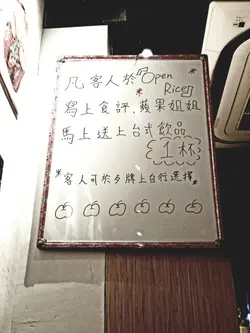 凡客人於Open
Rice內
寫上食評.蘋果姐姐
馬上送上台式飲品
1杯
*客人可於夕牌上自行選擇*